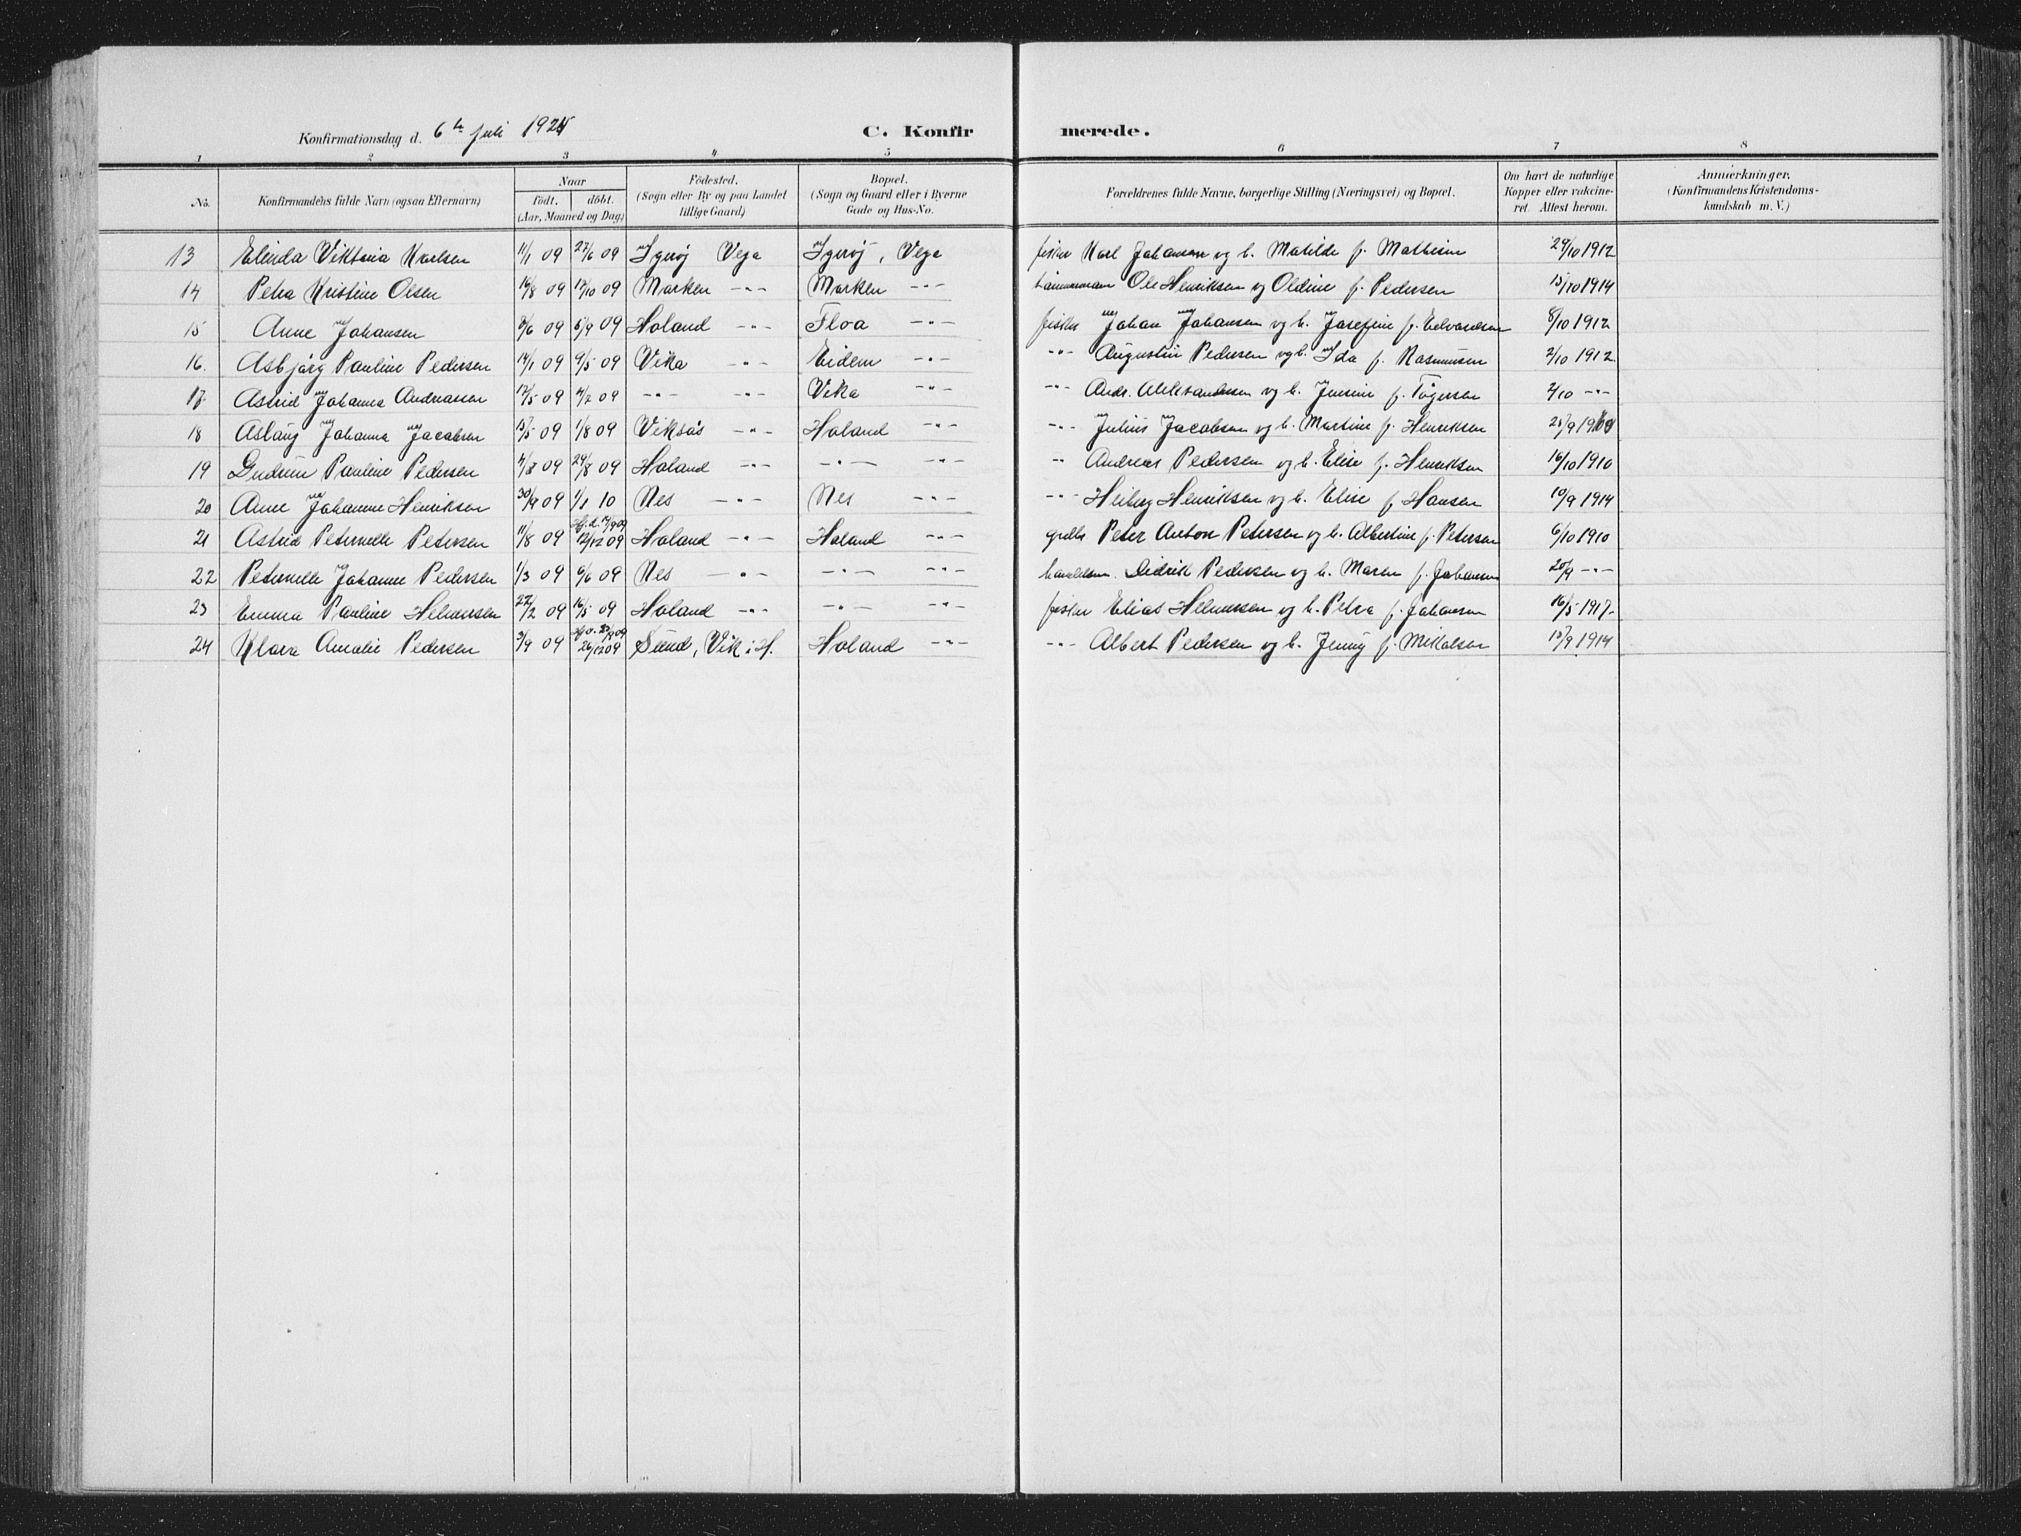 Konfirmationsdag d. 6te juli 1924 C. Konfirmerede.
1 2 3 4 5 6 7 8
No. Konfirmandens fulde Navn (ogsaa Efternavn) Naar födt. döbt. (Aar, Maaned og Dag) Födested. (Sogn eller By og paa Landet tillige Gaard) Bopæl. (Sogn og Gaard eller i Byerne Gade og Hus-No. Forældrenes fulde Navne, borgerlige Stilling (Næringsvei) og Bopæl. Om havt de naturlige Kopper eller vakcineret. Attest herom. Anmærkninger. (Konfirmandens Kristendomskundskab m. V.)
13 Elinda Viktoria Karlsen 11/1 09 27/6 09 Igerøj Vega Igerøj, Vega fisker Karl Johansen og h. Matilde f. Mathisen 29/10 1912
14 Petra Kristine Olsen 16/8 09 17/10 09 Marken -"- Marken -"- tømmermann Ole Henriksen og Oldine f. Pedersen 15/10 1914
15 Anne Johansen 3/6 09 5/9 09 Holand -"- Floa -"- fisker Johan Johansen og h. Josefine f. Edvardsen 8/10 1912
16. Asbjørg Pauline Pedersen 14/1 09 9/5 09 Vika -"- Eidem -"- -"- Augustin Pedersen og h. Ida f. Rasmussen 2/10 1912.
17. Astrid Johanna Andreassen 17/5 09 4/7 09 -"- -"- Vika -"- -"- Andr. Aleksandersen og h. Jensine f. Tøgersen 2/10 -"-
18 Aslaug Johanna Jacobsen 15/5 09 1/8 09 Viksås -"- Holand -"- -"- Julius Jacobsen og h. Martine f. Henriksen
19 Gudrun Pauline Pedersen 29/8 09 Holand -"- -"- -"- -"- Andreas Pedersen og h. Elise f. Henriksen 16/10 1910
20 Anne Johanne Henriksen 30/9 09 1/1 10 Nes -"- Nes -"- -"- Heiberg Henriksen og h. Elise f. Hansen 10/9 1914
21 Astrid Peternelle Pedersen 11/8 09 Hj.d. 14/9 09 12/12 09 Holand -"- Holand -"- Peter Anton Petersen og h. Albertine f. Petersen 6/10 1910
22 Peternelle Johanne Pedersen 1/3 09 6/6 09 Nes -"- -"- -"- handelsm. Didrik Pedersen og h. Maren f. Johansen 20/9 -"-
23 Emma Pauline Helmersen 27/2 09 16/5 09 Holand -"- -"- -"- fisker Elias Helmersen og h. Petra f. Johansen 16/5 1917.
24 Klara Amalie Pedersen 3/9 09 26/12 09 Sund, Vik i H. Holand -"- -"- Albert Pedersen og h. Jenny f. Mikalsen 15/9 1914